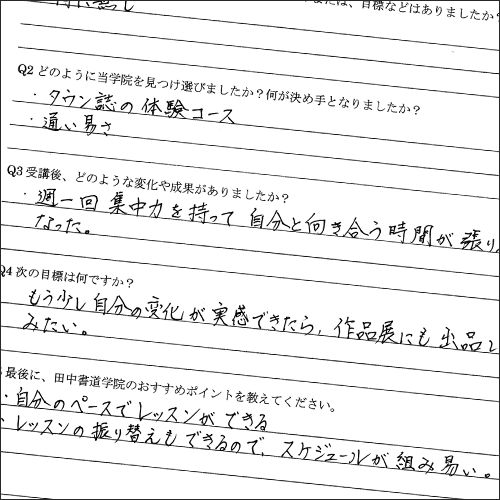 特に無し
または、目標などはありましたか?
Q2 どのように当学院を見つけ選びましたか?何が決め手となりましたか?
・タウン誌の体験コース
・通い易さ
Q3 受講後、どのような変化や成果がありましたか?
・週一回 集中力を持って 自分と向き合う時間が張り
なった。
Q4 次の目標は何ですか?
もう少し自分の変化が実感できたら、作品展にも出品し
みたい。
最後に、田中書道学院のおすすめポイントを教えてください。
・自分のペースでレッスンができる
・レッスンの振り替えもできるので、スケジュールが組み易い。